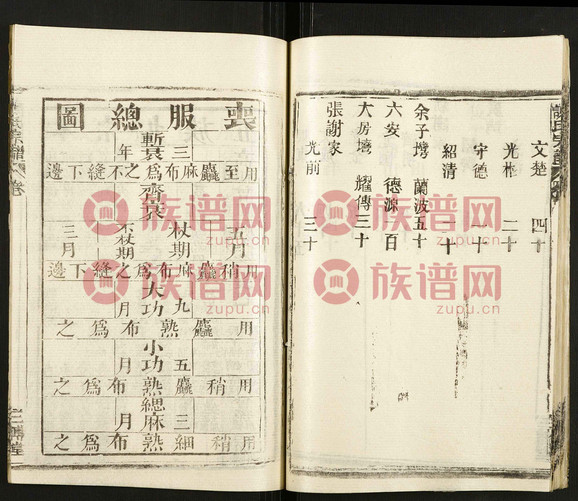 文楚 四十
光桓 二十
宇德 一十
紹清
余子塆 蘭波 五十
六安 德源 百
大房塆 耀傳 三十
張謝家
光前 三十
喪服總圖
斬衰
三年
用至麤麻布為之不縫下邊
齊衰
五月
杖期
不杖期
三月
用稍麤麻布為之縫下邊
大功
九月
用麤熟布為之
小功
五月
用稍麤熟布為之
緦麻
三月
用稍細熟布為之
族谱网
zupu.cn
族谱网
zupu.cn